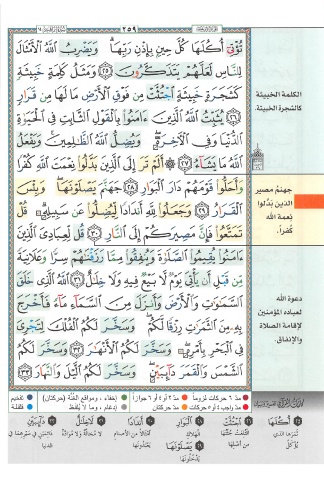 ٢٥٩
تُؤْتِىٓ أُكُلَهَا كُلَّ حِينٍۭ بِإِذْنِ رَبِّهَا ۗ وَيَضْرِبُ ٱللَّهُ ٱلْأَمْثَالَ
لِلنَّاسِ لَعَلَّهُمْ يَتَذَكَّرُونَ ٢٥ وَمَثَلُ كَلِمَةٍ خَبِيثَةٍ
كَشَجَرَةٍ خَبِيثَةٍ ٱجْتُثَّتْ مِن فَوْقِ ٱلْأَرْضِ مَا لَهَا مِن قَرَارٍ
٢٦ يُثَبِّتُ ٱللَّهُ ٱلَّذِينَ ءَامَنُوا۟ بِٱلْقَوْلِ ٱلثَّابِتِ فِى ٱلْحَيَوٰةِ
ٱلدُّنْيَا وَفِى ٱلْـَٔاخِرَةِ ۖ وَيُضِلُّ ٱللَّهُ ٱلظَّـٰلِمِينَ ۚ وَيَفْعَلُ
ٱللَّهُ مَا يَشَآءُ ٢٧ أَلَمْ تَرَ إِلَى ٱلَّذِينَ بَدَّلُوا۟ نِعْمَتَ ٱللَّهِ كُفْرًا
وَأَحَلُّوا۟ قَوْمَهُمْ دَارَ ٱلْبَوَارِ ٢٨ جَهَنَّمَ يَصْلَوْنَهَا ۖ وَبِئْسَ
ٱلْقَرَارُ ٢٩ وَجَعَلُوا۟ لِلَّهِ أَندَادًا لِّيُضِلُّوا۟ عَن سَبِيلِهِۦ ۗ قُلْ
تَمَتَّعُوا۟ فَإِنَّ مَصِيرَكُمْ إِلَى ٱلنَّارِ ٣٠ قُل لِّعِبَادِىَ ٱلَّذِينَ
ءَامَنُوا۟ يُقِيمُوا۟ ٱلصَّلَوٰةَ وَيُنفِقُوا۟ مِمَّا رَزَقْنَـٰهُمْ سِرًّا وَعَلَانِيَةً
مِّن قَبْلِ أَن يَأْتِىَ يَوْمٌ لَّا بَيْعٌ فِيهِ وَلَا خِلَـٰلٌ ٣١ ٱللَّهُ ٱلَّذِى خَلَقَ
ٱلسَّمَـٰوَٰتِ وَٱلْأَرْضَ وَأَنزَلَ مِنَ ٱلسَّمَآءِ مَآءً فَأَخْرَجَ
بِهِۦ مِنَ ٱلثَّمَرَٰتِ رِزْقًا لَّكُمْ ۖ وَسَخَّرَ لَكُمُ ٱلْفُلْكَ لِتَجْرِىَ
فِى ٱلْبَحْرِ بِأَمْرِهِۦ ۖ وَسَخَّرَ لَكُمُ ٱلْأَنْهَـٰرَ ٣٢ وَسَخَّرَ لَكُمُ
ٱلشَّمْسَ وَٱلْقَمَرَ دَآئِبَيْنِ ۖ وَسَخَّرَ لَكُمُ ٱلَّيْلَ وَٱلنَّهَارَ ٣٣
الكلمة الخبيثة
كالشجرة الخبيثة.
جهنمُ مصير
الذين بَدَّلوا
نعمة الله
كُفراً.
دعوة الله
لعباده المؤمنين
لإقامة الصلاة
والإنفاق.